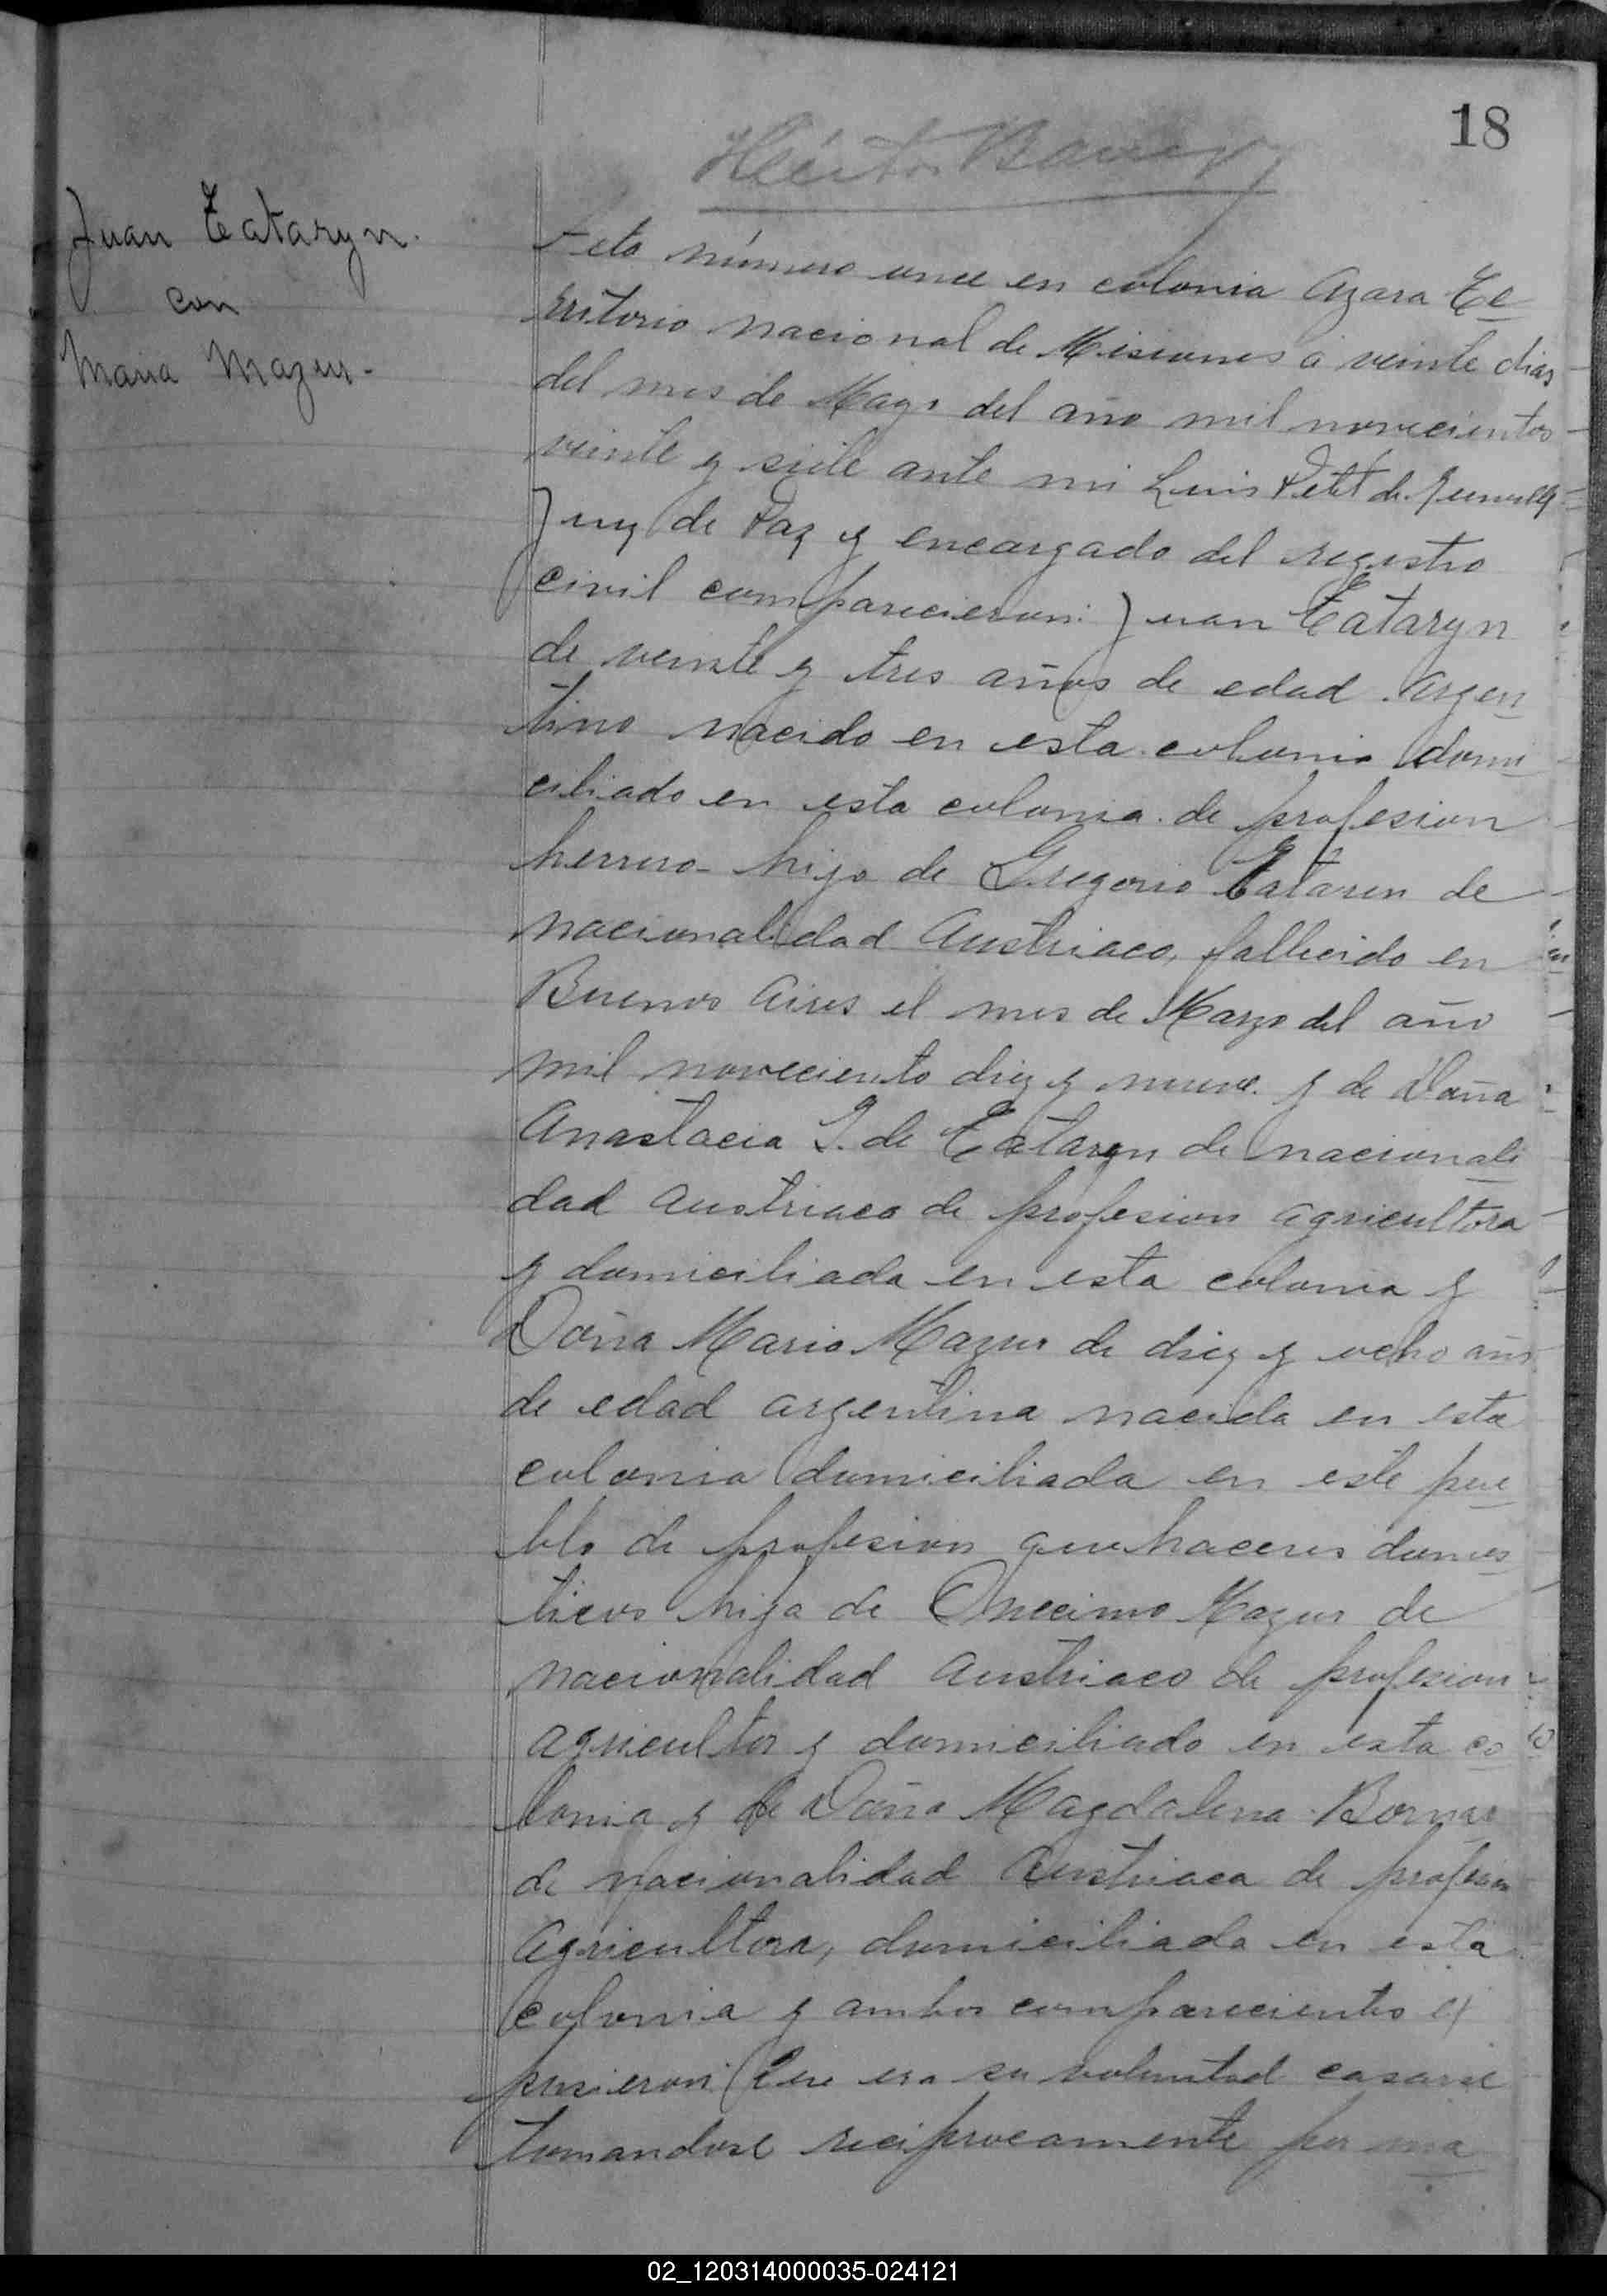 18
Héctor
Juan Tataryn.
con
Maria Mazur.
Acta número once en colonia Azara Te
rritorio nacional de Misiones á veinte dias
del mes de Mayo del año mil novecientos
veinte y siete ante mi Luis Petit de
Juez de Paz y encargado del registro
civil comparecieron: Juan Tataryn
de veinte y tres años de edad Argen
tino nacido en esta colonia domi
ciliado en esta colonia de profesion
herrero hijo de Gregorio Tataren de
nacionalidad Austriaco, fallecido en
Buenos Aires el mes de Marzo del año
mil noveciento diez y nueve y de Doña
Anastacia S. de Tataryn de nacionali
dad Austriaca de profesion agricultora
y domiciliada en esta colonia y
Doña Maria Mazur de diez y ocho años
de edad argentina nacida en esta
colonia domiciliada en este pue
blo de profesion quehaceres domes
ticos hija de Onecimo Mazur de
nacionalidad Austriaco de profesion
agricultor y domiciliado en esta co
lonia y de Doña Magdalena
de nacionalidad Austriaca de profesion
Agricultora, domiciliada en esta
colonia y ambos comparecientes ex
pusieron Que era su voluntad casarse
tomandose reciprocamente por
02_120314000035-024121